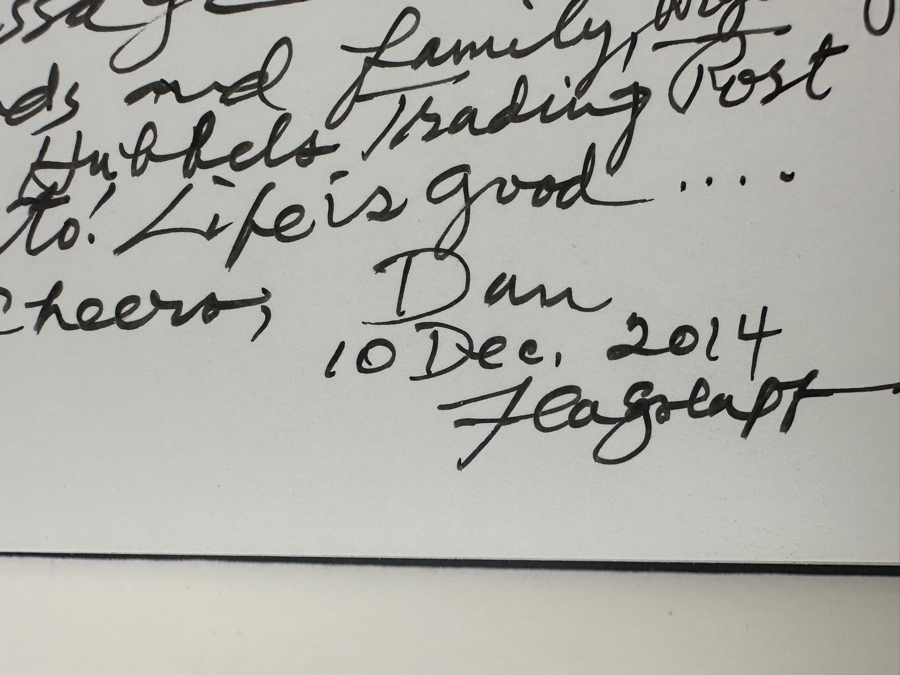 ssage
ds and family,
Hubbels Trading Post
to! Life is good ....
Cheers, Dan
10 Dec. 2014
Flagstaff